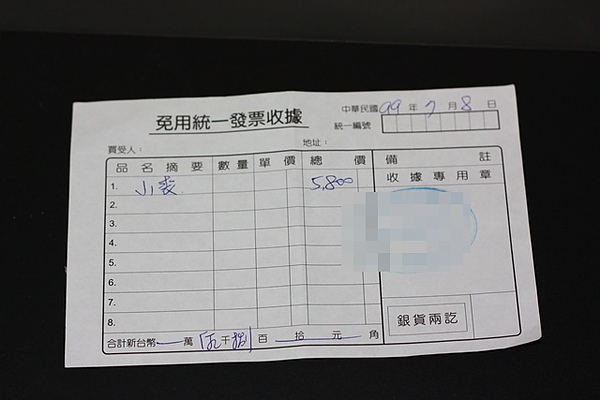 免用統一發票收據
中華民國 99 年 7 月 8 日
統一編號
買受人： 地址：
品名摘要 數量 單價 總價 備註
1. 5,800 收據專用章
2.
3.
4.
5.
6.
7.
8.
銀貨兩訖
合計新台幣 萬 伍千捌 百 拾 元 角